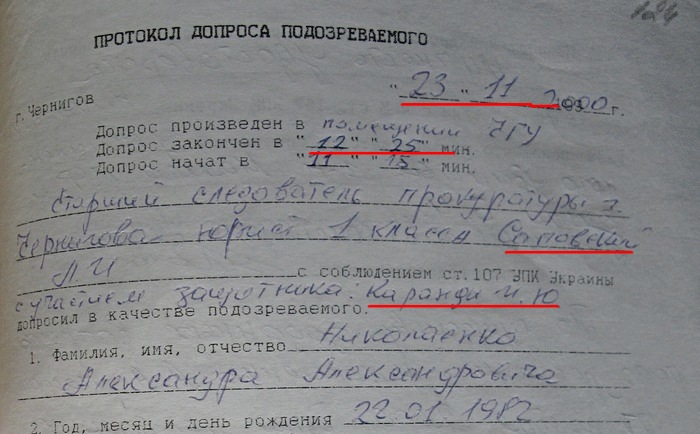 124
ПРОТОКОЛ ДОПРОСА ПОДОЗРЕВАЕМОГО
г. Чернигов
"23" 11 2000 г.
Допрос произведен в помещении ЧГУ
Допрос закончен в "12" "25" мин.
Допрос начат в "11" "15" мин.
Старший следователь прокуратуры г.
Чернигова юрист 1 класса
Л И с соблюдением ст.107 УПК Украины
с участием защитника: Каранди И.Ю
допросил в качестве подозреваемого.
1. Фамилия, имя, отчество Николаенко
Александра Александровича
2. Год, месяц и день рождения 22 01 1982